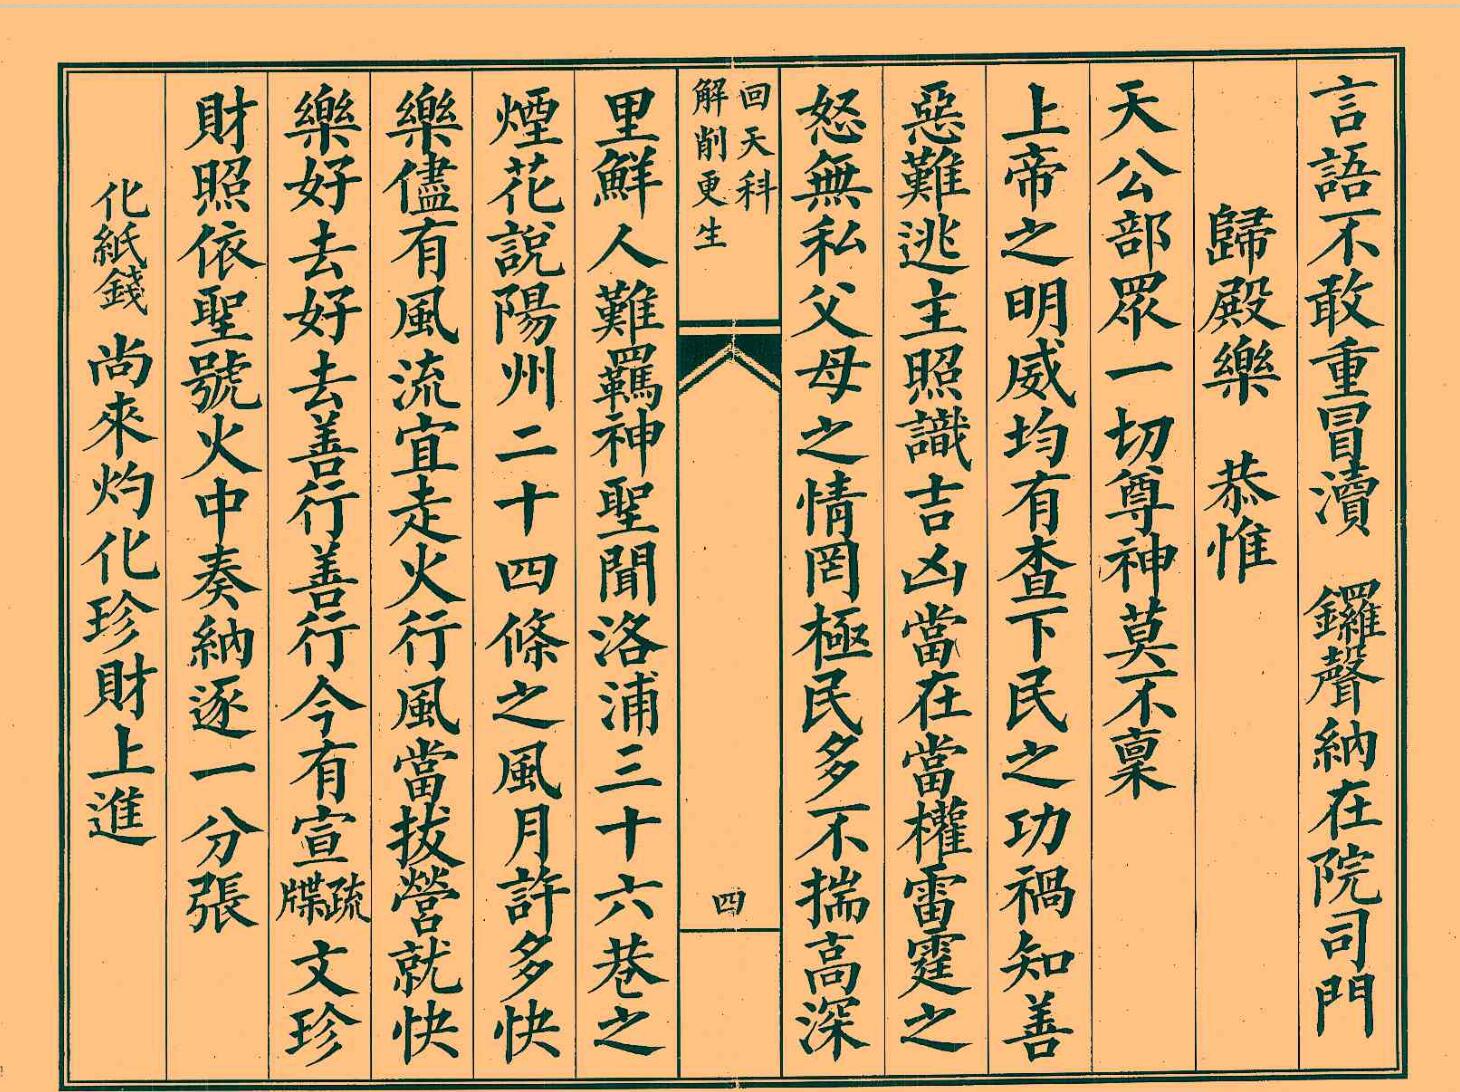 言語不敢重冒瀆　鑼聲納在院司門
歸殿樂　恭惟
天公部眾一切尊神莫不稟
上帝之明威均有查下民之功禍知善
惡難逃主照識吉凶當在當權雷霆之
怒無私父母之情罔極民多不揣高深
回天科
解削更生
四
里鮮人難羈神聖聞洛浦三十六巷之
煙花說陽州二十四條之風月許多快
樂儘有風流宜走火行風當拔營就快
樂好去好去善行善行今有宣疏牒文珍
財照依聖號火中奏納逐一分張
化紙錢　尚來灼化珍財上進